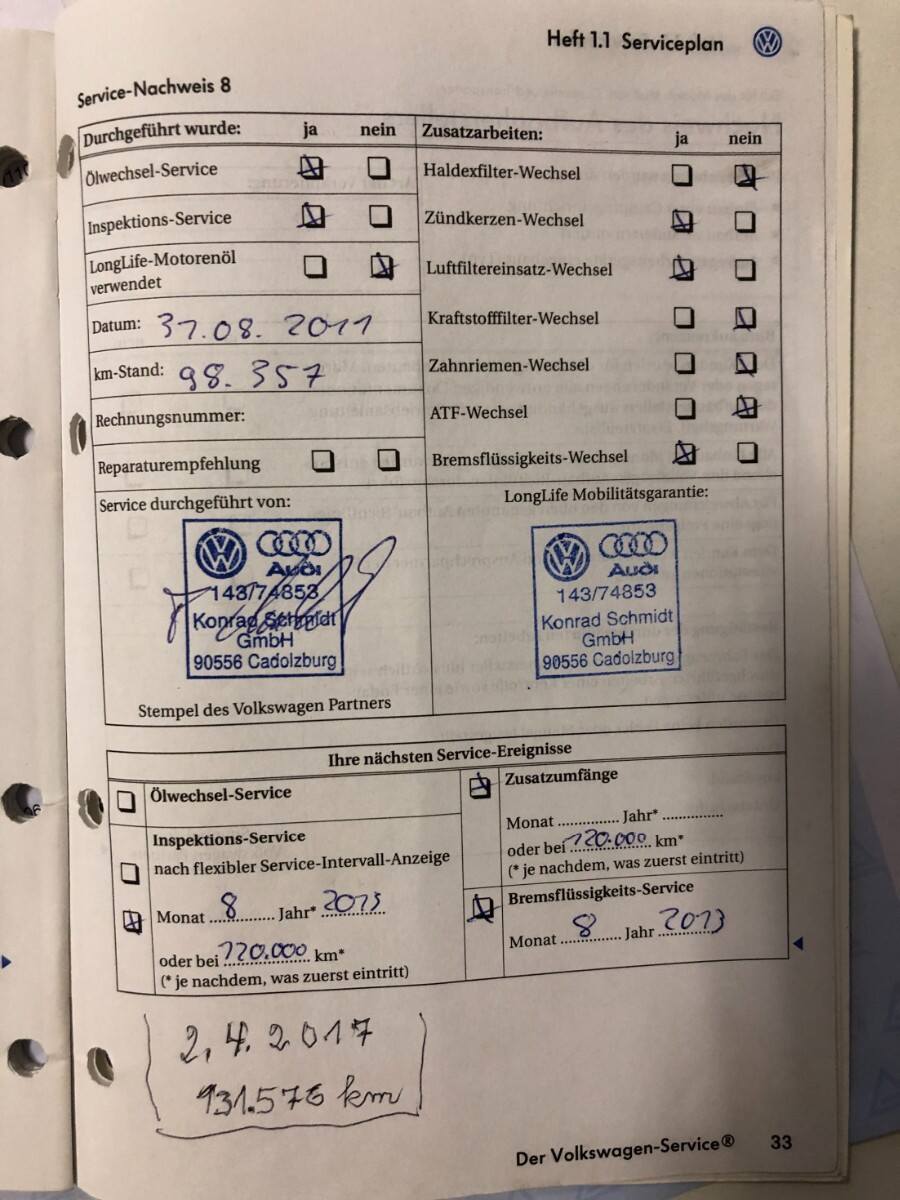 Heft 1.1 Serviceplan
Service-Nachweis 8
Durchgeführt wurde: ja nein
Ölwechsel-Service
Inspektions-Service
LongLife-Motorenöl
verwendet
Datum: 31.08.2011
km-Stand: 98.357
Rechnungsnummer:
Reparaturempfehlung
Zusatzarbeiten: ja nein
Haldexfilter-Wechsel
Zündkerzen-Wechsel
Luftfiltereinsatz-Wechsel
Kraftstofffilter-Wechsel
Zahnriemen-Wechsel
ATF-Wechsel
Bremsflüssigkeits-Wechsel
Service durchgeführt von:
Audi
143/74853
Konrad Schmidt
GmbH
90556 Cadolzburg
Stempel des Volkswagen Partners
LongLife Mobilitätsgarantie:
Audi
143/74853
Konrad Schmidt
GmbH
90556 Cadolzburg
Ihre nächsten Service-Ereignisse
Ölwechsel-Service
Inspektions-Service
nach flexibler Service-Intervall-Anzeige
Monat 8 Jahr* 2013
oder bei 120.000 km*
(* je nachdem, was zuerst eintritt)
Zusatzumfänge
Monat ............... Jahr* ...............
oder bei 120.000 km*
(* je nachdem, was zuerst eintritt)
Bremsflüssigkeits-Service
Monat 8 Jahr 2013
2.4.2017
131.576 km
Der Volkswagen-Service® 33